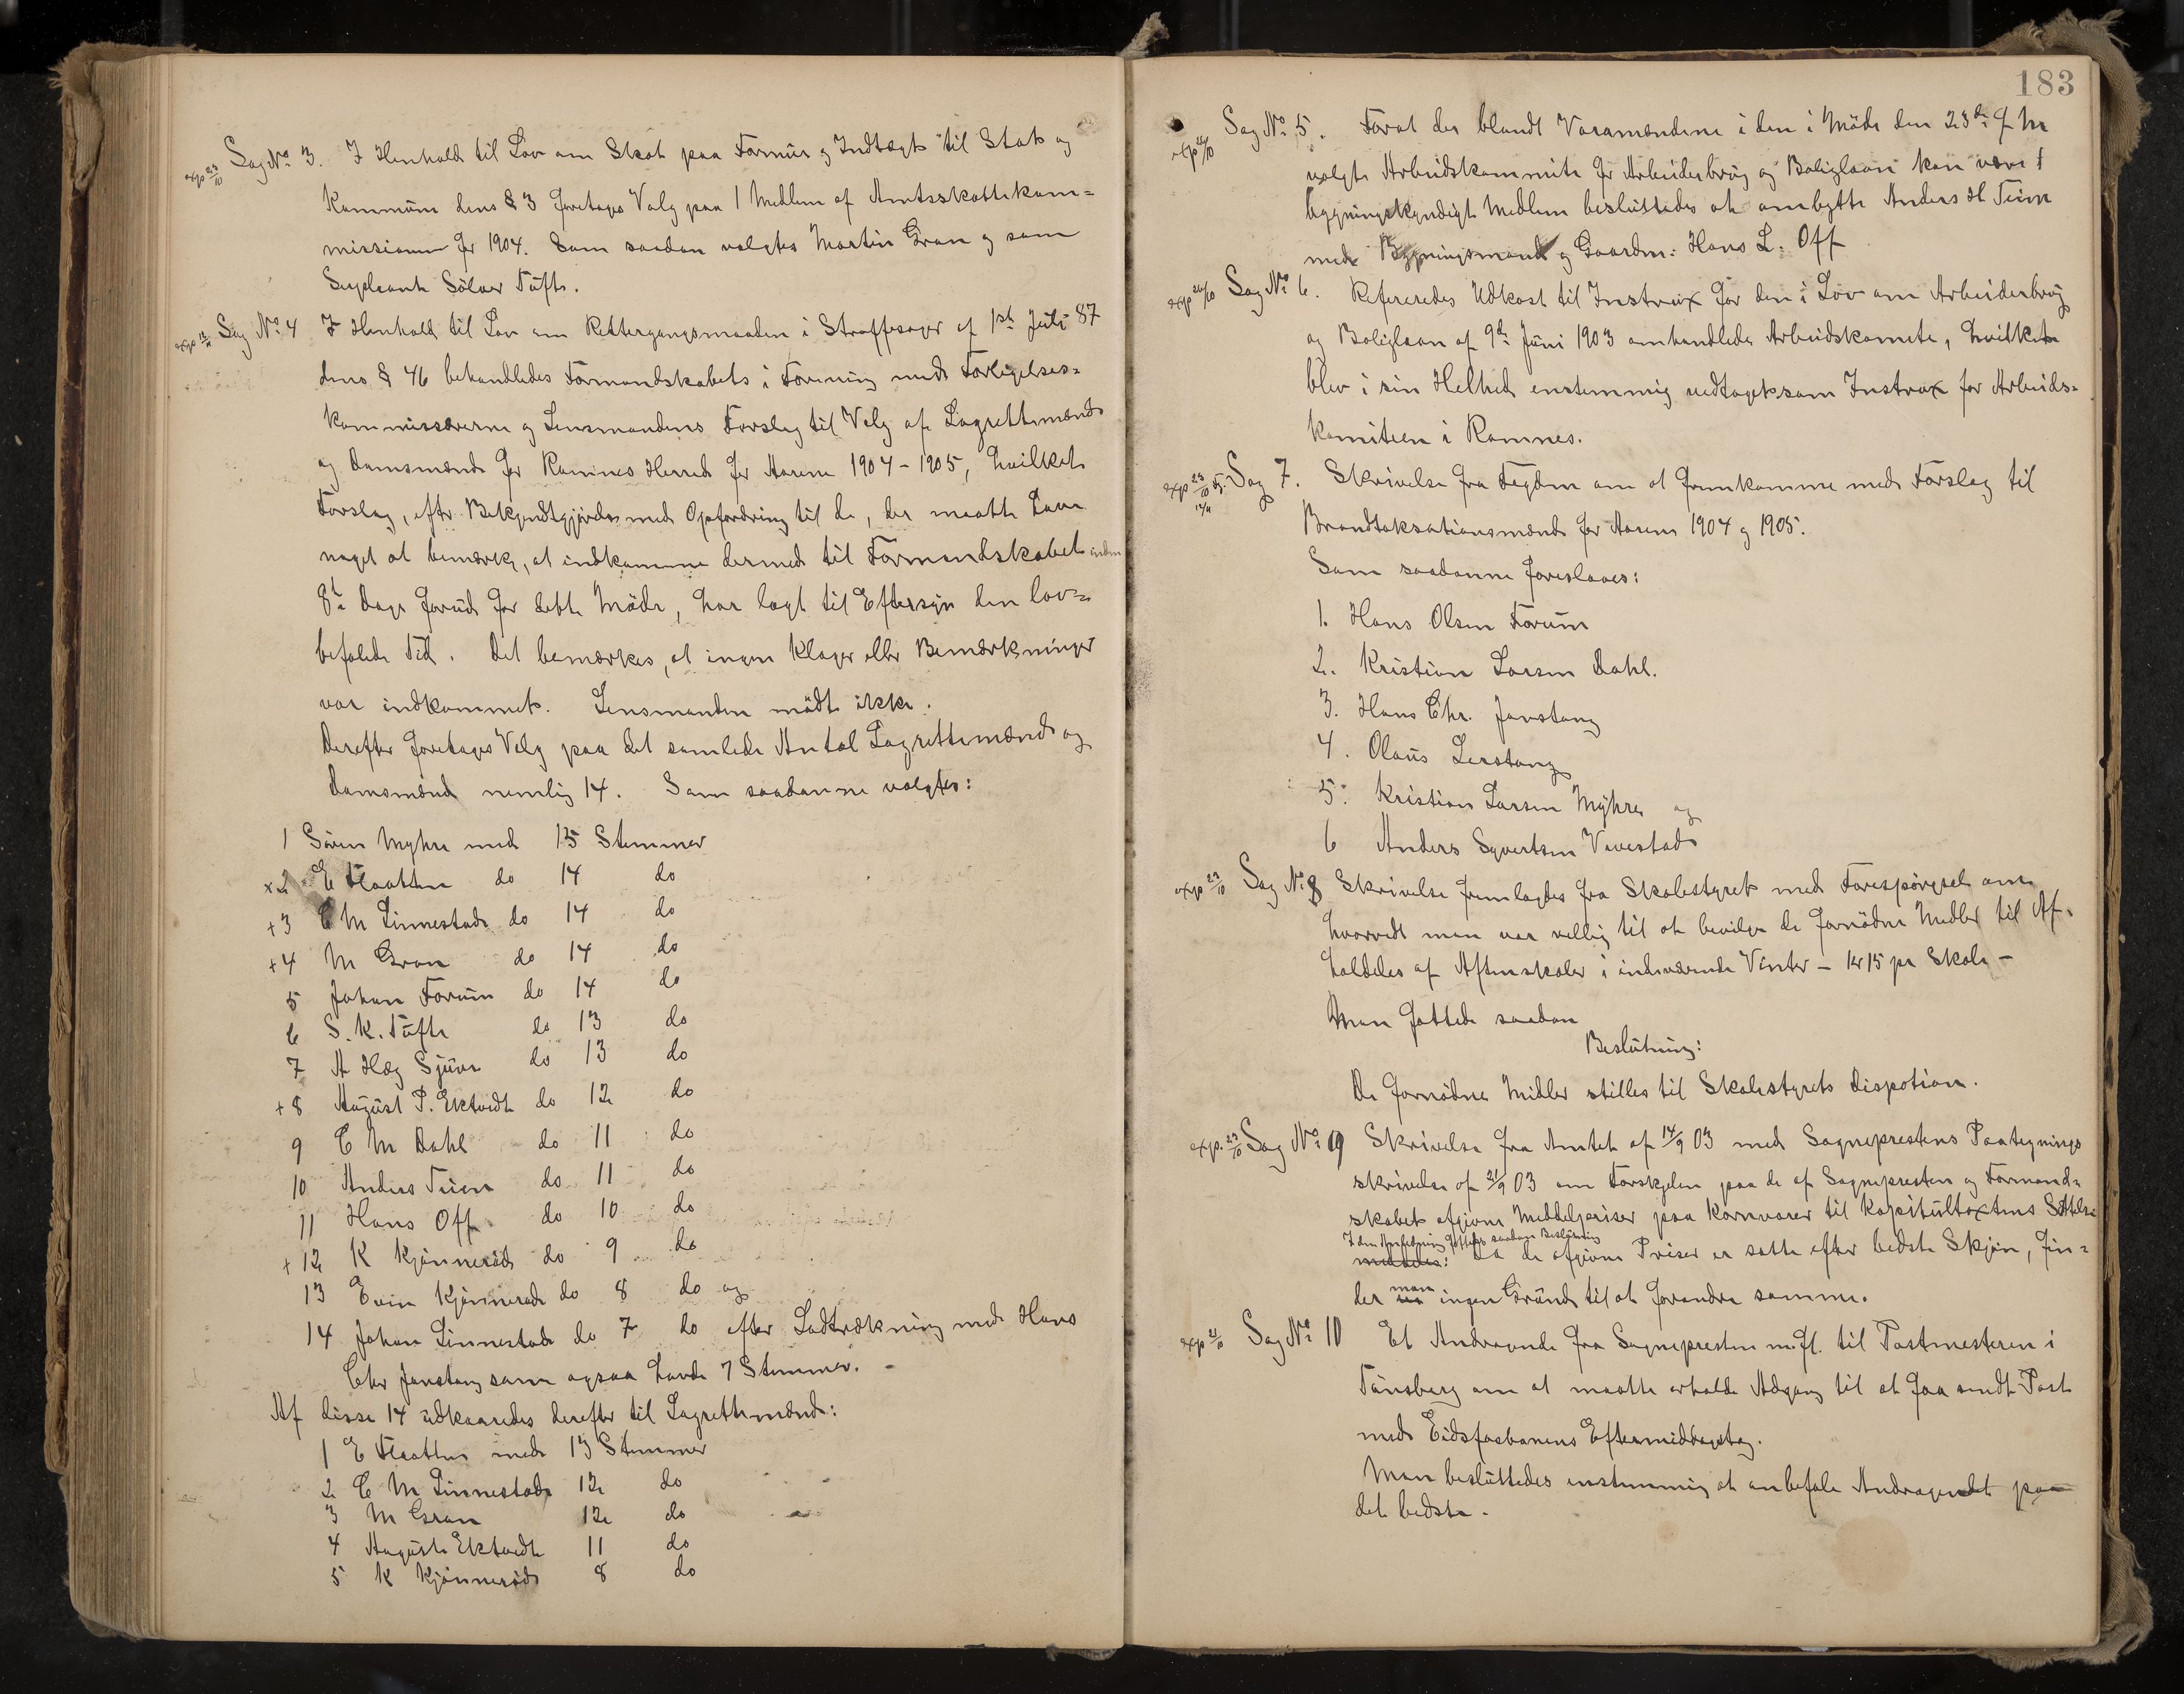 exp 23/10 Sag No 3. I Henhold til Lov om Skat paa Formue og Indtægt til Stat og
Kommune dens § 3 foretages Valg paa 1 Medlem af Amtsskattekom=
missionen for 1904. Som saadan valgtes Martin Gran og som
Supleant Sölver Tufte.
exp 12/11 Sag No 4 I Henhold til Lov om Rettergangsmaaden i Straffesager af 1st Juli 87
dens § 46 behandledes Formandskabets i Forening med Forligelses=
kommissærerne og Lensmandens Forslag til Valg af Lagrettemænd
og Domsmænd for Ramnes Herred for Aarene 1904 - 1905, hvilket
Forslag, efter Bekjendtgjörelse med Opfordring til de, der maatte have
noget at bemærke, at indkomme dermed til Formandskabet inden
8te Dage forud for dette Möde, har lagt til Eftersyn den lov=
befalede Tid. Det bemærkes, at ingen Klager eller Bemærkninger
var indkommet. Lensmanden mödte ikke.
Derefter foretages Valg paa det samlede Antal Lagrettemænd og
Domsmænd nemlig 14. Som saadanne valgtes:
1 Sören Myhre med 15 Stemmer
x2 E Flaatten do 14 do
+3 C M Linnestad do 14 do
+4 M Gran do 14 do
5 Johan Forum do 14 do
6 S. K. Tufte do 13 do
7 A Hæg Sjuve do 13 do
+8 August P. Ektvedt do 12 do
9 C M Dahl do 11 do
10 Anders Teien do 11 do
11 Hans Off do 10 do
+12 K Kjönneröd do 9 do
13 Even Kjönneröd do 8 do og
14 Johan Linnestad do 7 do efter Lodtrækning med Hans
Chr Javstang som ogsaa havde 7 Stemmer. -
Af disse 14 udkaaredes derefter til Lagrettemænd:
1 E Flaatten med 13 Stemmer
2 C M Linnestad 12 do
3 M Gran 12 do
4 August Ektvedt 11 do
5 K Kjönneröd 8 do
183
exp 26/10 Sag No 5. Forat der blandt Varamændene i den i Möde den 23de f M
valgte Arbeidskommite for Arbeiderbrug og Boliglaan kan være 1
bygningskyndigt Medlem besluttedes at ombytte Anders H Teien
med Bygningsmand og Gaardm: Hans L. Off
exp 26/10 Sag No 6. Refereredes Udkast til Instrux for den i Lov om Arbeiderbrug
og Boliglaan af 9de Juni 1903 omhandlede Arbeidskomite, hvilket
blev i sin Helhed enstemmig vedtaget som Instrux for Arbeids=
komiteen i Ramnes.
exp 23/10 12/11 Sag 7. Skrivelse fra Fogden om at fremkomme med Forslag til
Brandtaksationsmænd for Aarene 1904 og 1905.
Som saadanne foreslaaes:
1. Hans Olsen Forum
2. Kristian Larsen Dahl.
3. Hans Chr. Javstang
4. Olaus Lerstang
5. Kristian Larsen Myhre og
6 Anders Syvertsen Vivestad
exp 23/10 Sag No 8 Skrivelse fremlagdes fra Skolestyret med Forespörgsel om
hvorvidt man var villig til at bevilge de fornödne Midler til Af=
holdelse af Aftenskoler i indeværende Vinter - Kr 15 pr Skole -
Man fattede saadan
Beslutning:
De fornödne Midler stilles til Skolestyrets Dispotion.
exp. 23/10 Sag No 9 Skrivelse fra Amtet af 14/9 03 med Sogneprestens Paategnings
skrivelse af 21/9 03 om Forskjelen paa de af Sognepresten og Formand=
skabet afgivne Middelpriser paa Kornvarer til Kapitultaxtens Sættelse
I den Anledning fattedes saadan Beslutning
meddeles: Da de afgivne Priser er satte efter bedste Skjön, fin=
der man ingen Grund til at forandre samme.
exp 21/10 Sag No 10 Et Andragende fra Sognepresten m. fl. til Postmesteren i
Tönsberg om at maatte erholde Adgang til at faa sendt Post
med Eidsfosbanens Eftermiddagstog.
Man besluttedes enstemmig at anbefale Andragendet paa
det bedste.